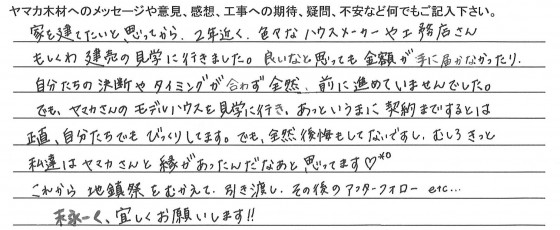 ヤマカ木材へのメッセージや意見、感想、工事への期待、疑問、不安など何でもご記入下さい。
家を建てたいと思ってから、2年近く、色々なハウスメーカーや工務店さん
もしくわ建売の見学に行きました。良いなと思っても金額が手に届かなかったり、
自分たちの決断やタイミングが合わず全然、前に進めていませんでした。
でも、ヤマカさんのモデルハウスを見学に行き、あっというまに契約までするとは
正直、自分たちでもびっくりしてます。でも、全然後悔もしてないですし、むしろきっと
私達はヤマカさんと縁があったんだなあと思ってます♡
これから地鎮祭をむかえて、引き渡し、その後のアフターフォローetc...
末永ーく、宜しくお願いします!!